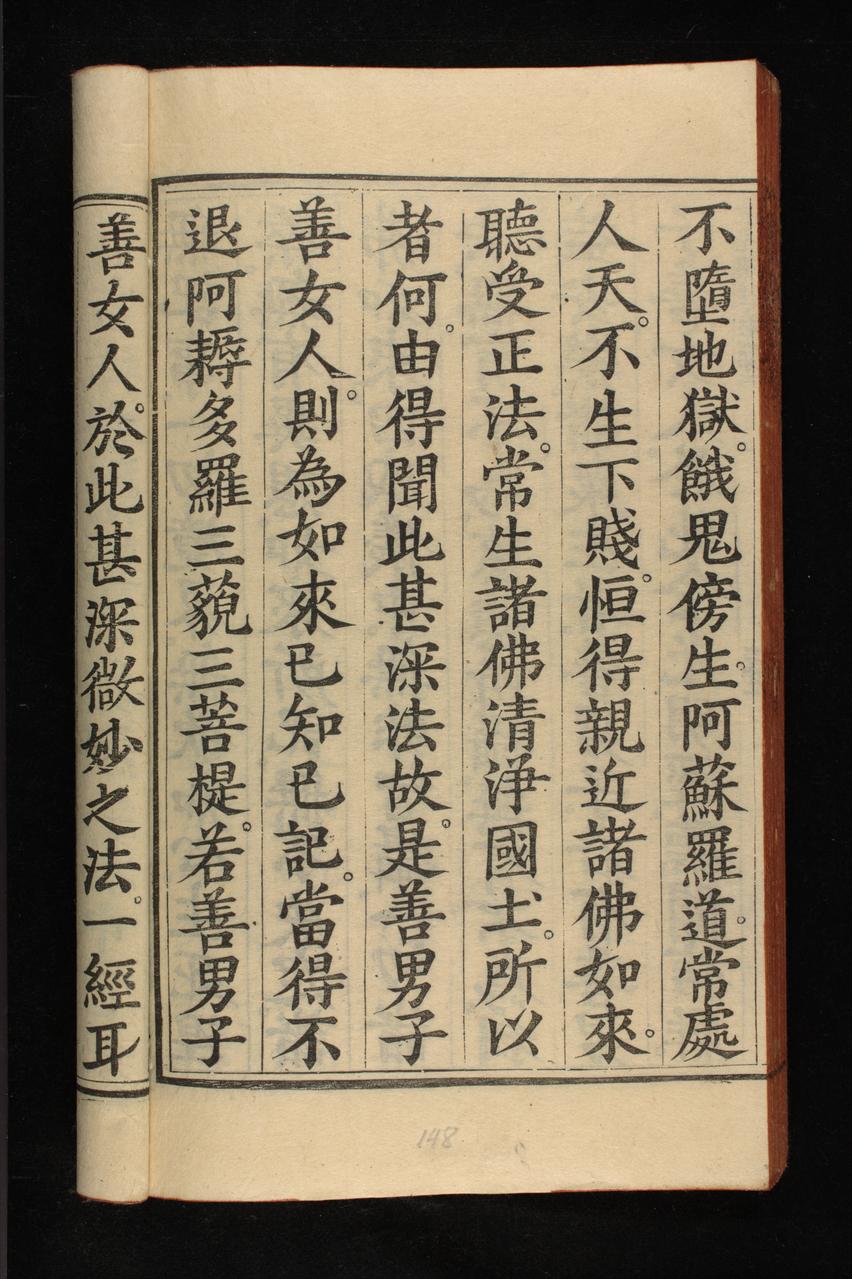 不墮地獄。餓鬼傍生。阿蘇羅道。常處
人天。不生下賤。恒得親近諸佛如來。
聽受正法。常生諸佛清淨國土。所以
者何。由得聞此甚深法故。是善男子
善女人。則為如來已知已記。當得不
退阿耨多羅三藐三菩提。若善男子
善女人。於此甚深微妙之法。一經耳
148